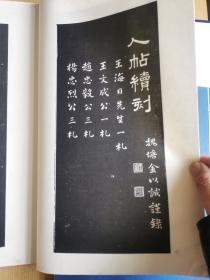 人帖續刻
王海日先生一札
王文成公一札
趙忠毅公三札
楊忠烈公三札
楓塘金以誠謹錄